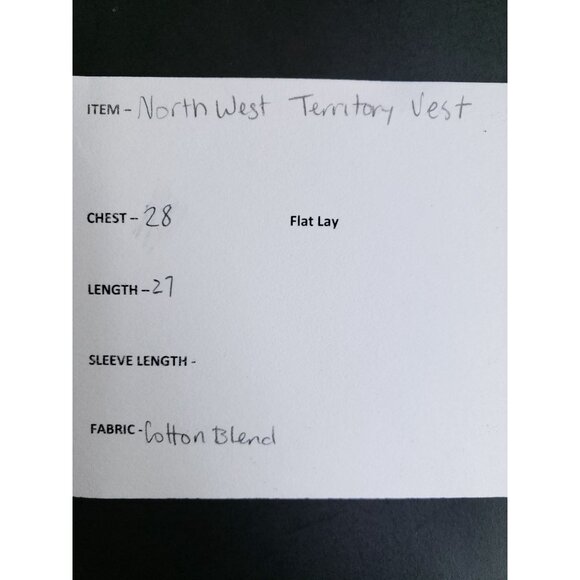 ITEM - North West Territory Vest
CHEST - 28 Flat Lay
LENGTH - 27
SLEEVE LENGTH -
FABRIC - Cotton Blend